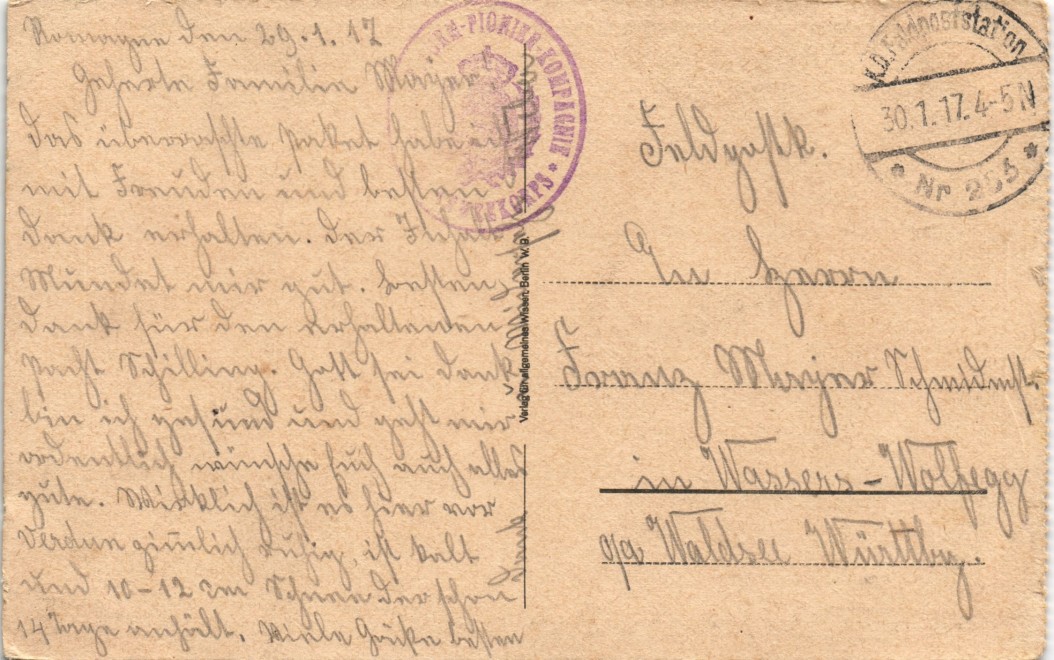 Romagne den 29.1.17
Geehrte Familie Mayer.
Das überraschte Paket habe ich
mit Freuden und besten
Dank erhalten. Der Inhalt
Mundet mir gut. Besten
Dank für den erhaltenen
Schilling. Gott sei Dank
bin ich gesund und geht mir
ordentlich wünsche Euch auch alles
gute. Wirklich ist es hier vor
Verdun zimlich ruhig, ist kalt
und 10-12 cm Schnee der schon
14 Tage anhält. Viele Grüße besten
Dank
PIONIER-KOMPAGNIE
KORPS
Verlag für allgemeines Wissen, Berlin W. 9.
K.D. Feldpoststation
30.1.17.4-5N
Nr
Feldpostk.
Herrn
Franz Mayer
in Wassers-Wolfegg
Waldsee Württbg.